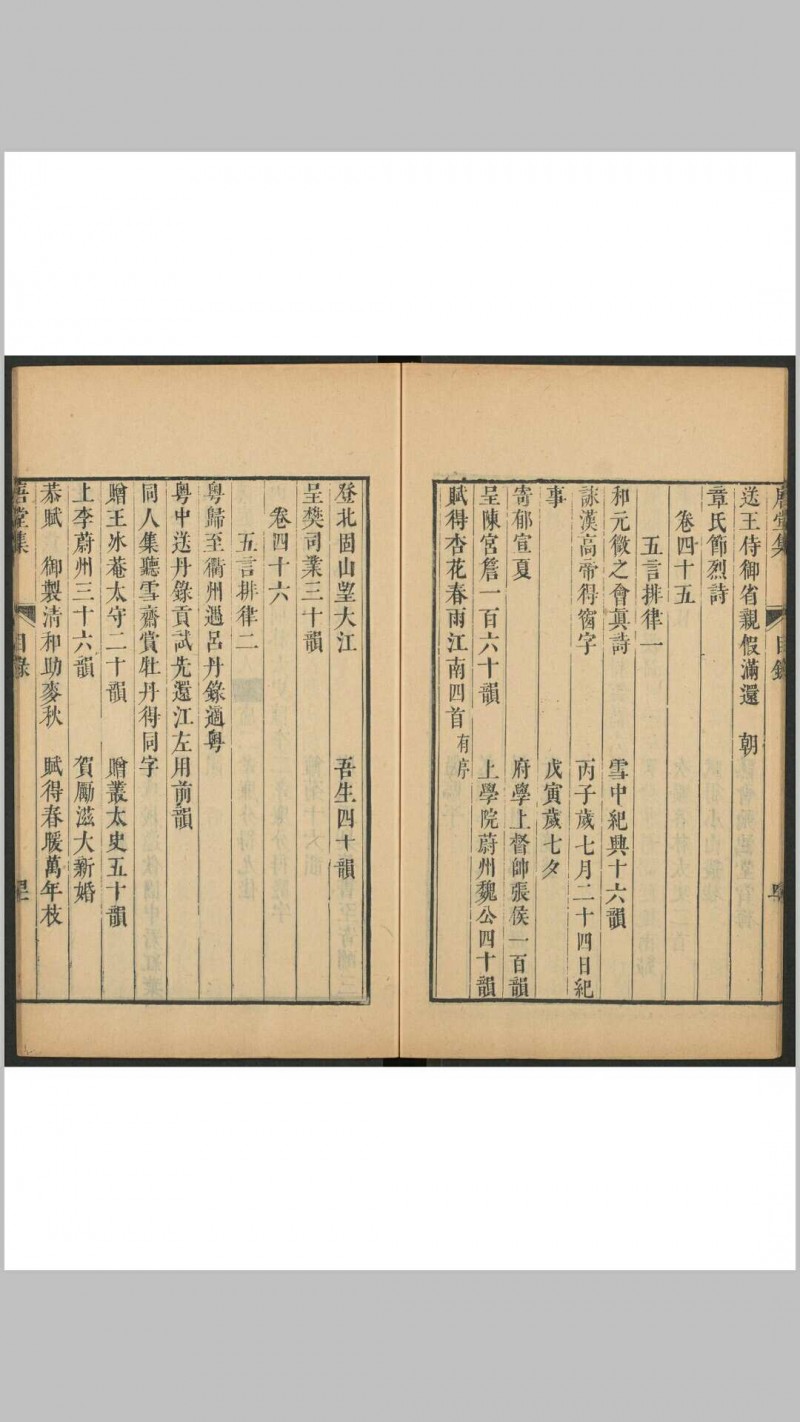 送王侍御省親假滿還　朝
章氏節烈詩
卷四十五
五言排律一
和元微之會眞詩　雪中紀興十六韻
詠漢高帝得 字　丙子歲七月二十四日紀
事　戊寅歲七夕
寄郁宣夏　府學上督師張侯一百韻
呈陳宮詹一百六十韻　上學院蔚州魏公四十韻
賦得杏花春雨江南四首有序
目錄
登北固山望大江　吾生四十韻
呈樊司業三十韻
卷四十六
五言排律二
粵歸至衢州遇呂丹錄適粵
粵中送丹錄貢試先還江左用前韻
同人集聽雪齋賞牡丹得同字
贈王冰菴太守二十韻　贈叢太史五十韻
上李蔚州三十六韻　賀勵滋大新婚
恭賦　御製清和助麥秋　賦得春暖萬年枝
堂集　目錄